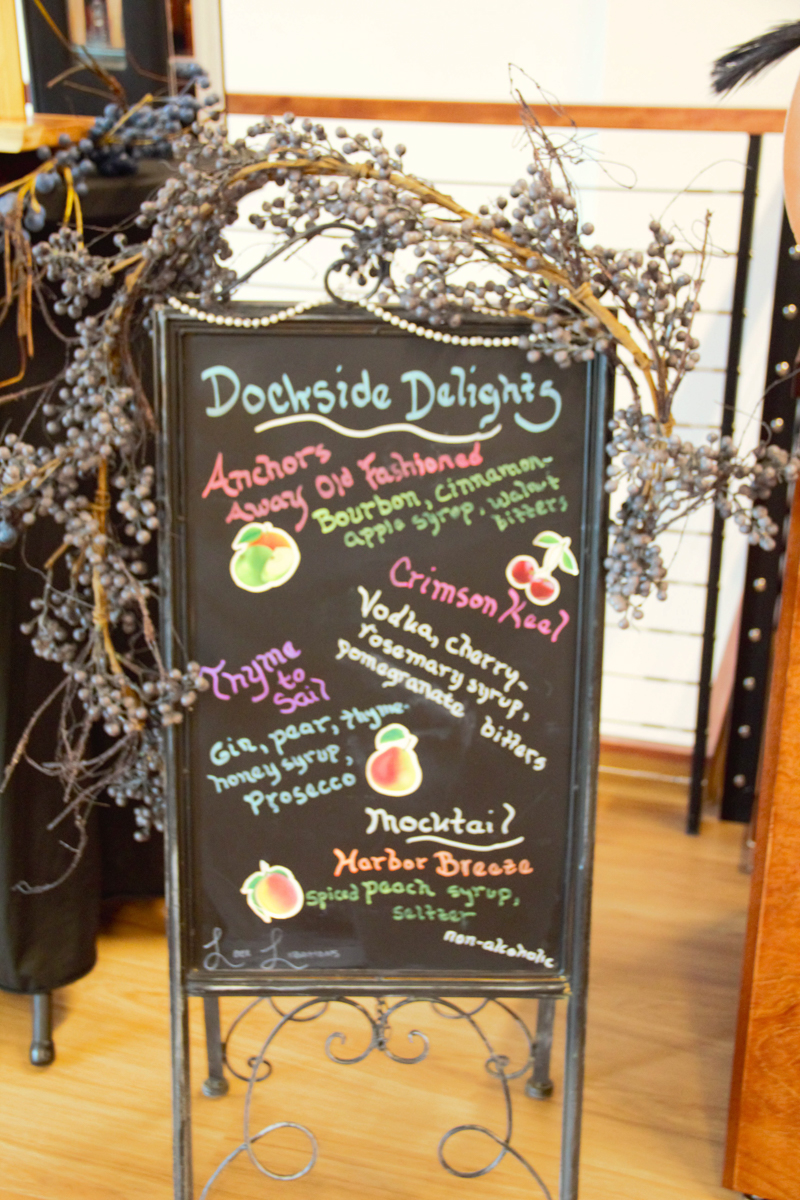 Dockside Delights
Anchors
Away Old Fashioned
Bourbon, cinnamon-
apple syrup, walnut
bitters
Crimson Keel
Vodka, cherry-
rosemary syrup,
pomegranate bitters
Thyme
to
Sail
Gin, pear, thyme-
honey syrup,
Prosecco
Mocktail
Harbor Breeze
spiced peach syrup,
seltzer
non-alcoholic